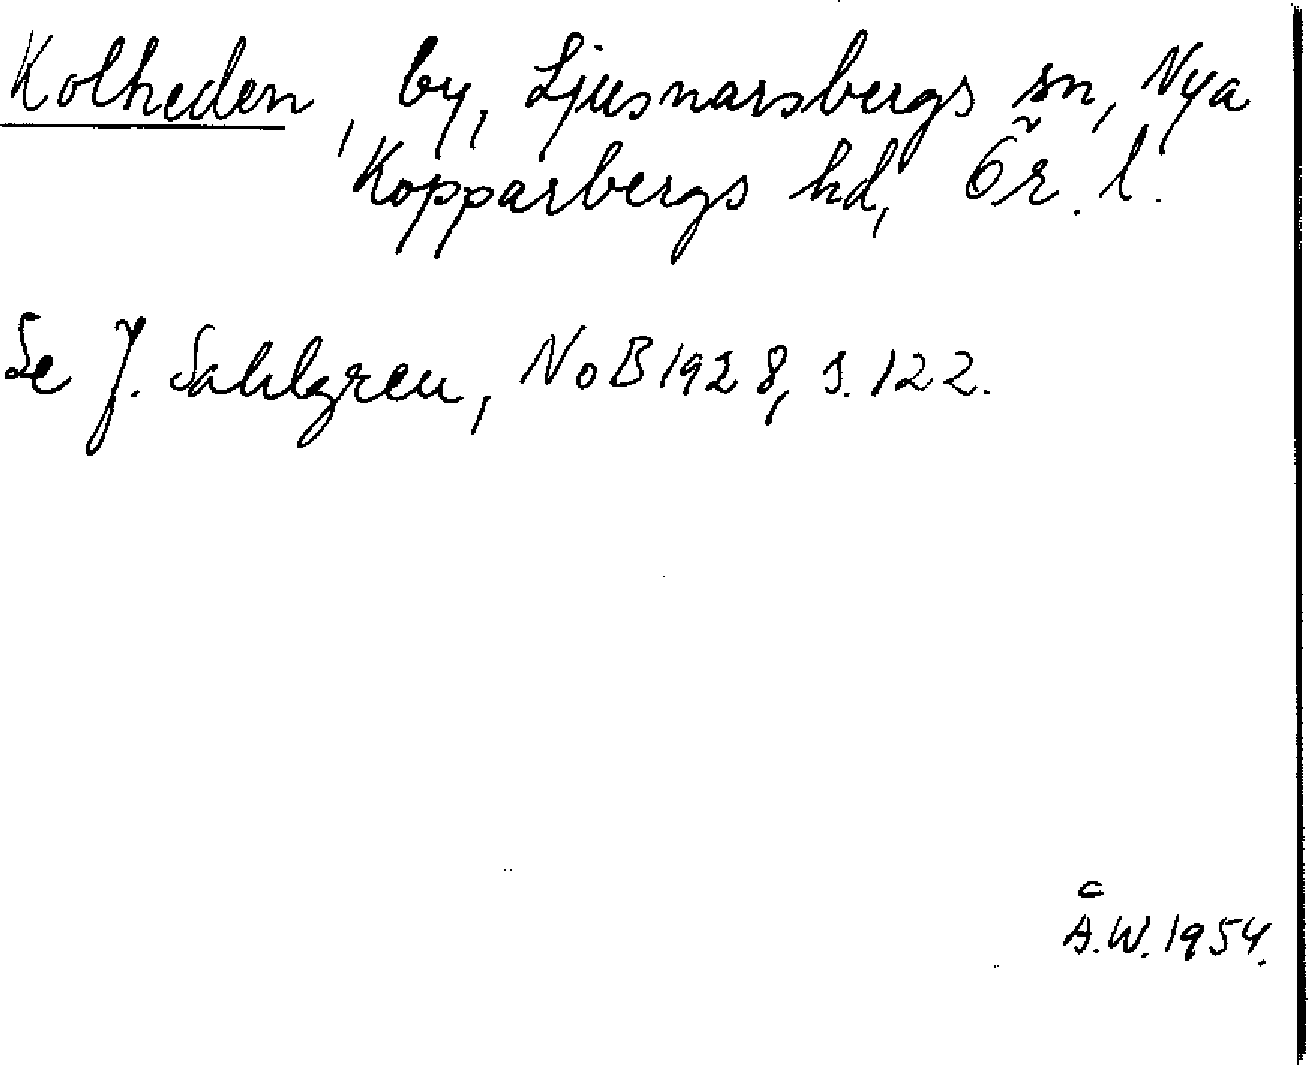 Kolheden, by, Ljusnarsbergs sn, Nya
Kopparbergs hd, Ör. l.
Se J. Sahlgren, NoB 1928, s. 122.
Å.W. 1954.